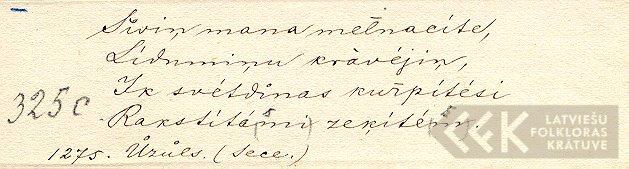 Siviņ mana meļnacīte,
Līdumiņu krāvējiņ,
Ik svētdīnas kuŗpītēsi
325c
Rakstītāmi zeķītēm.
1275. Ūzuls. (Sece.)
LATVIEŠU
FOLKLORAS
KRĀTUVE